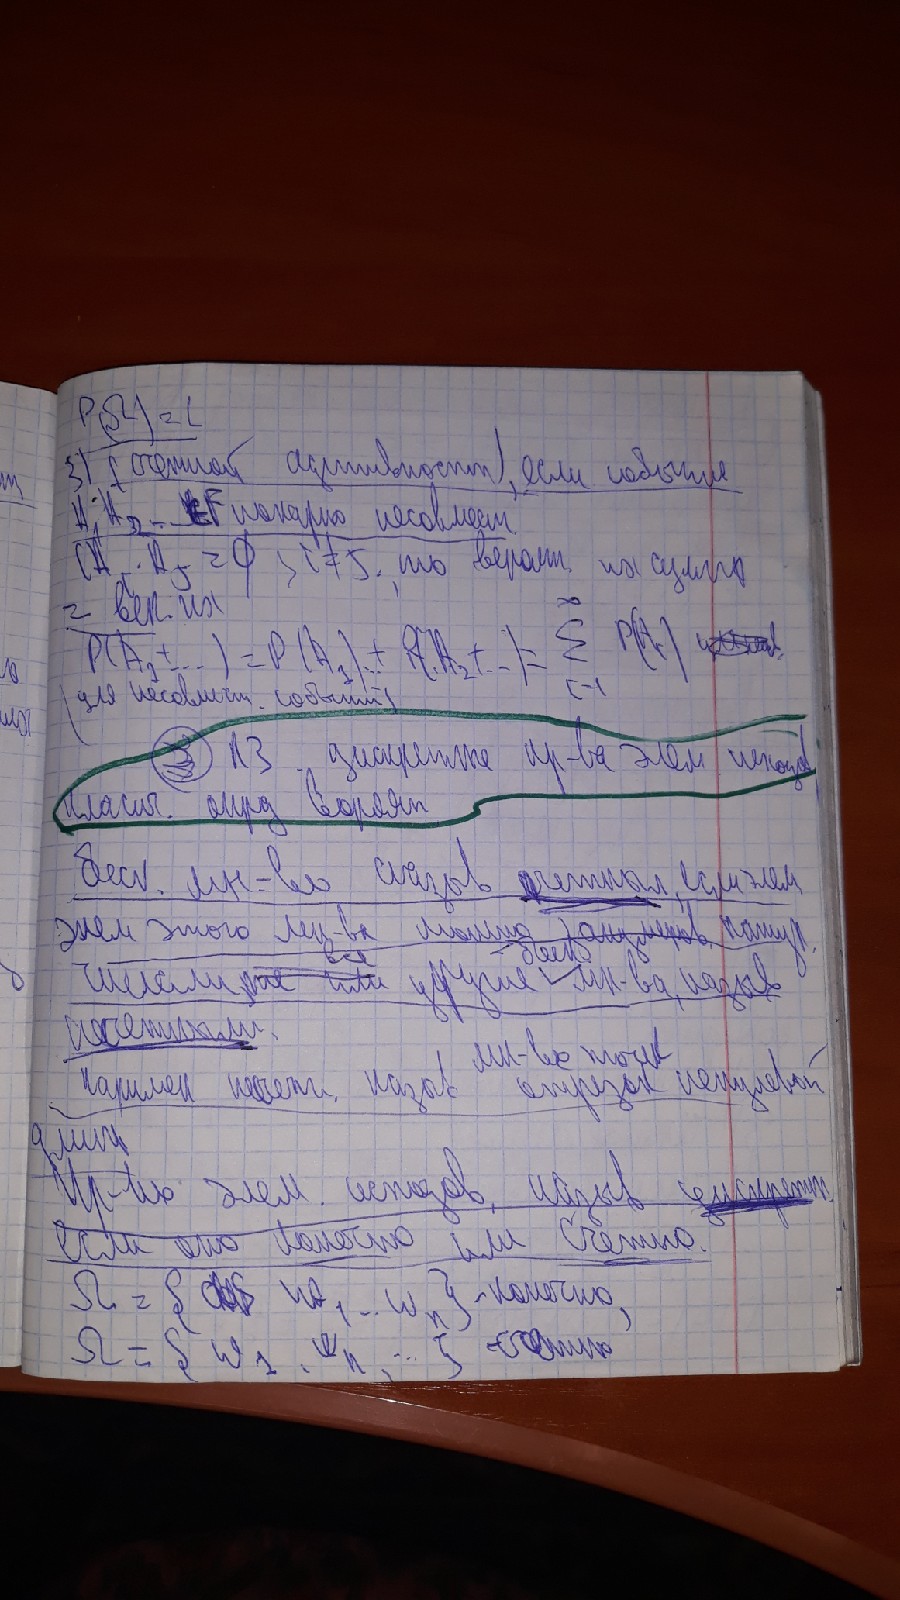 P(Ω) = 1
3) (счетной адитивности), если события
A₁ A₂ ... ∈ F попарно несовмест
(A · A_j = ∅, i ≠ j. то вероят. их сумма
= вер. их
P(A₁+...) = P(A₁)+ P(A₂+...) = ∞ Σ i=1 P(A_i)
(для несовмест. событий)
③ Λ3 дискретные пр-ва элем исходов
класич. опрд вероят
Беск. мн-во назов счетном, если элем
элем этого мн-ва можно занумеров натур.
числами все другие беск мн-ва назыв
несчетными.
мн-во точек
несчетн. назов отрезок ненулевой
длины
Пр-во элем. исходов, назыв дискретн.
если оно конечно или счетно.
Ω = { w₁ ... wₙ} - конечно,
Ω = { w₁ . wₙ, ... } - счетно